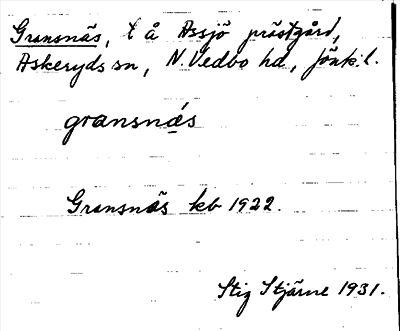 Gransnäs, t å Assjö prästgård,
Askeryds sn, N. Vedbo hd, Jönk. l.
gransnä́s
Gransnäs kb 1922.
Stig Stjärne 1931.